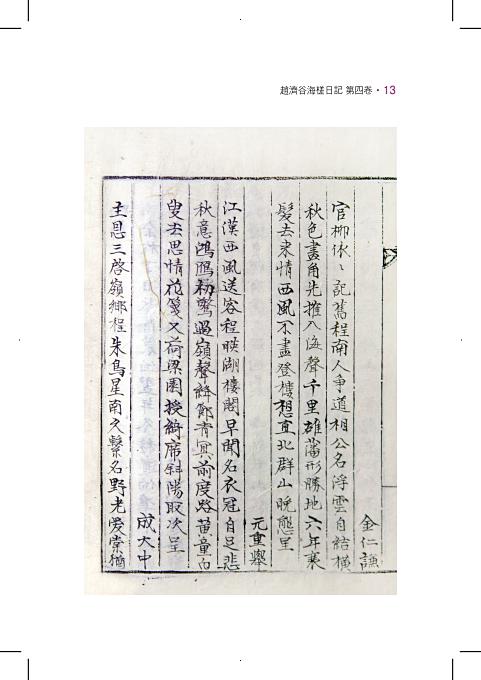 趙濟谷海槎日記 第四卷 • 13
金仁謙
官柳依〻記舊程南人爭道相公名浮雲自結橫
秋色畫角先摧入海聲千里雄藩形勝地六年衰
髮去來情西風不盡登樓想直北群山晩態呈
元重擧
江漢西風送客程映湖樓閣早聞名衣冠自足悲
秋意鴻鴈初驚過嶺聲絳節青冥前度路黃童白
叟去思情花箋又荷梁園授綺席斜陽取次呈
成大中
主恩三啓嶺鄕程朱鳥星南久繫名野老愛棠猶